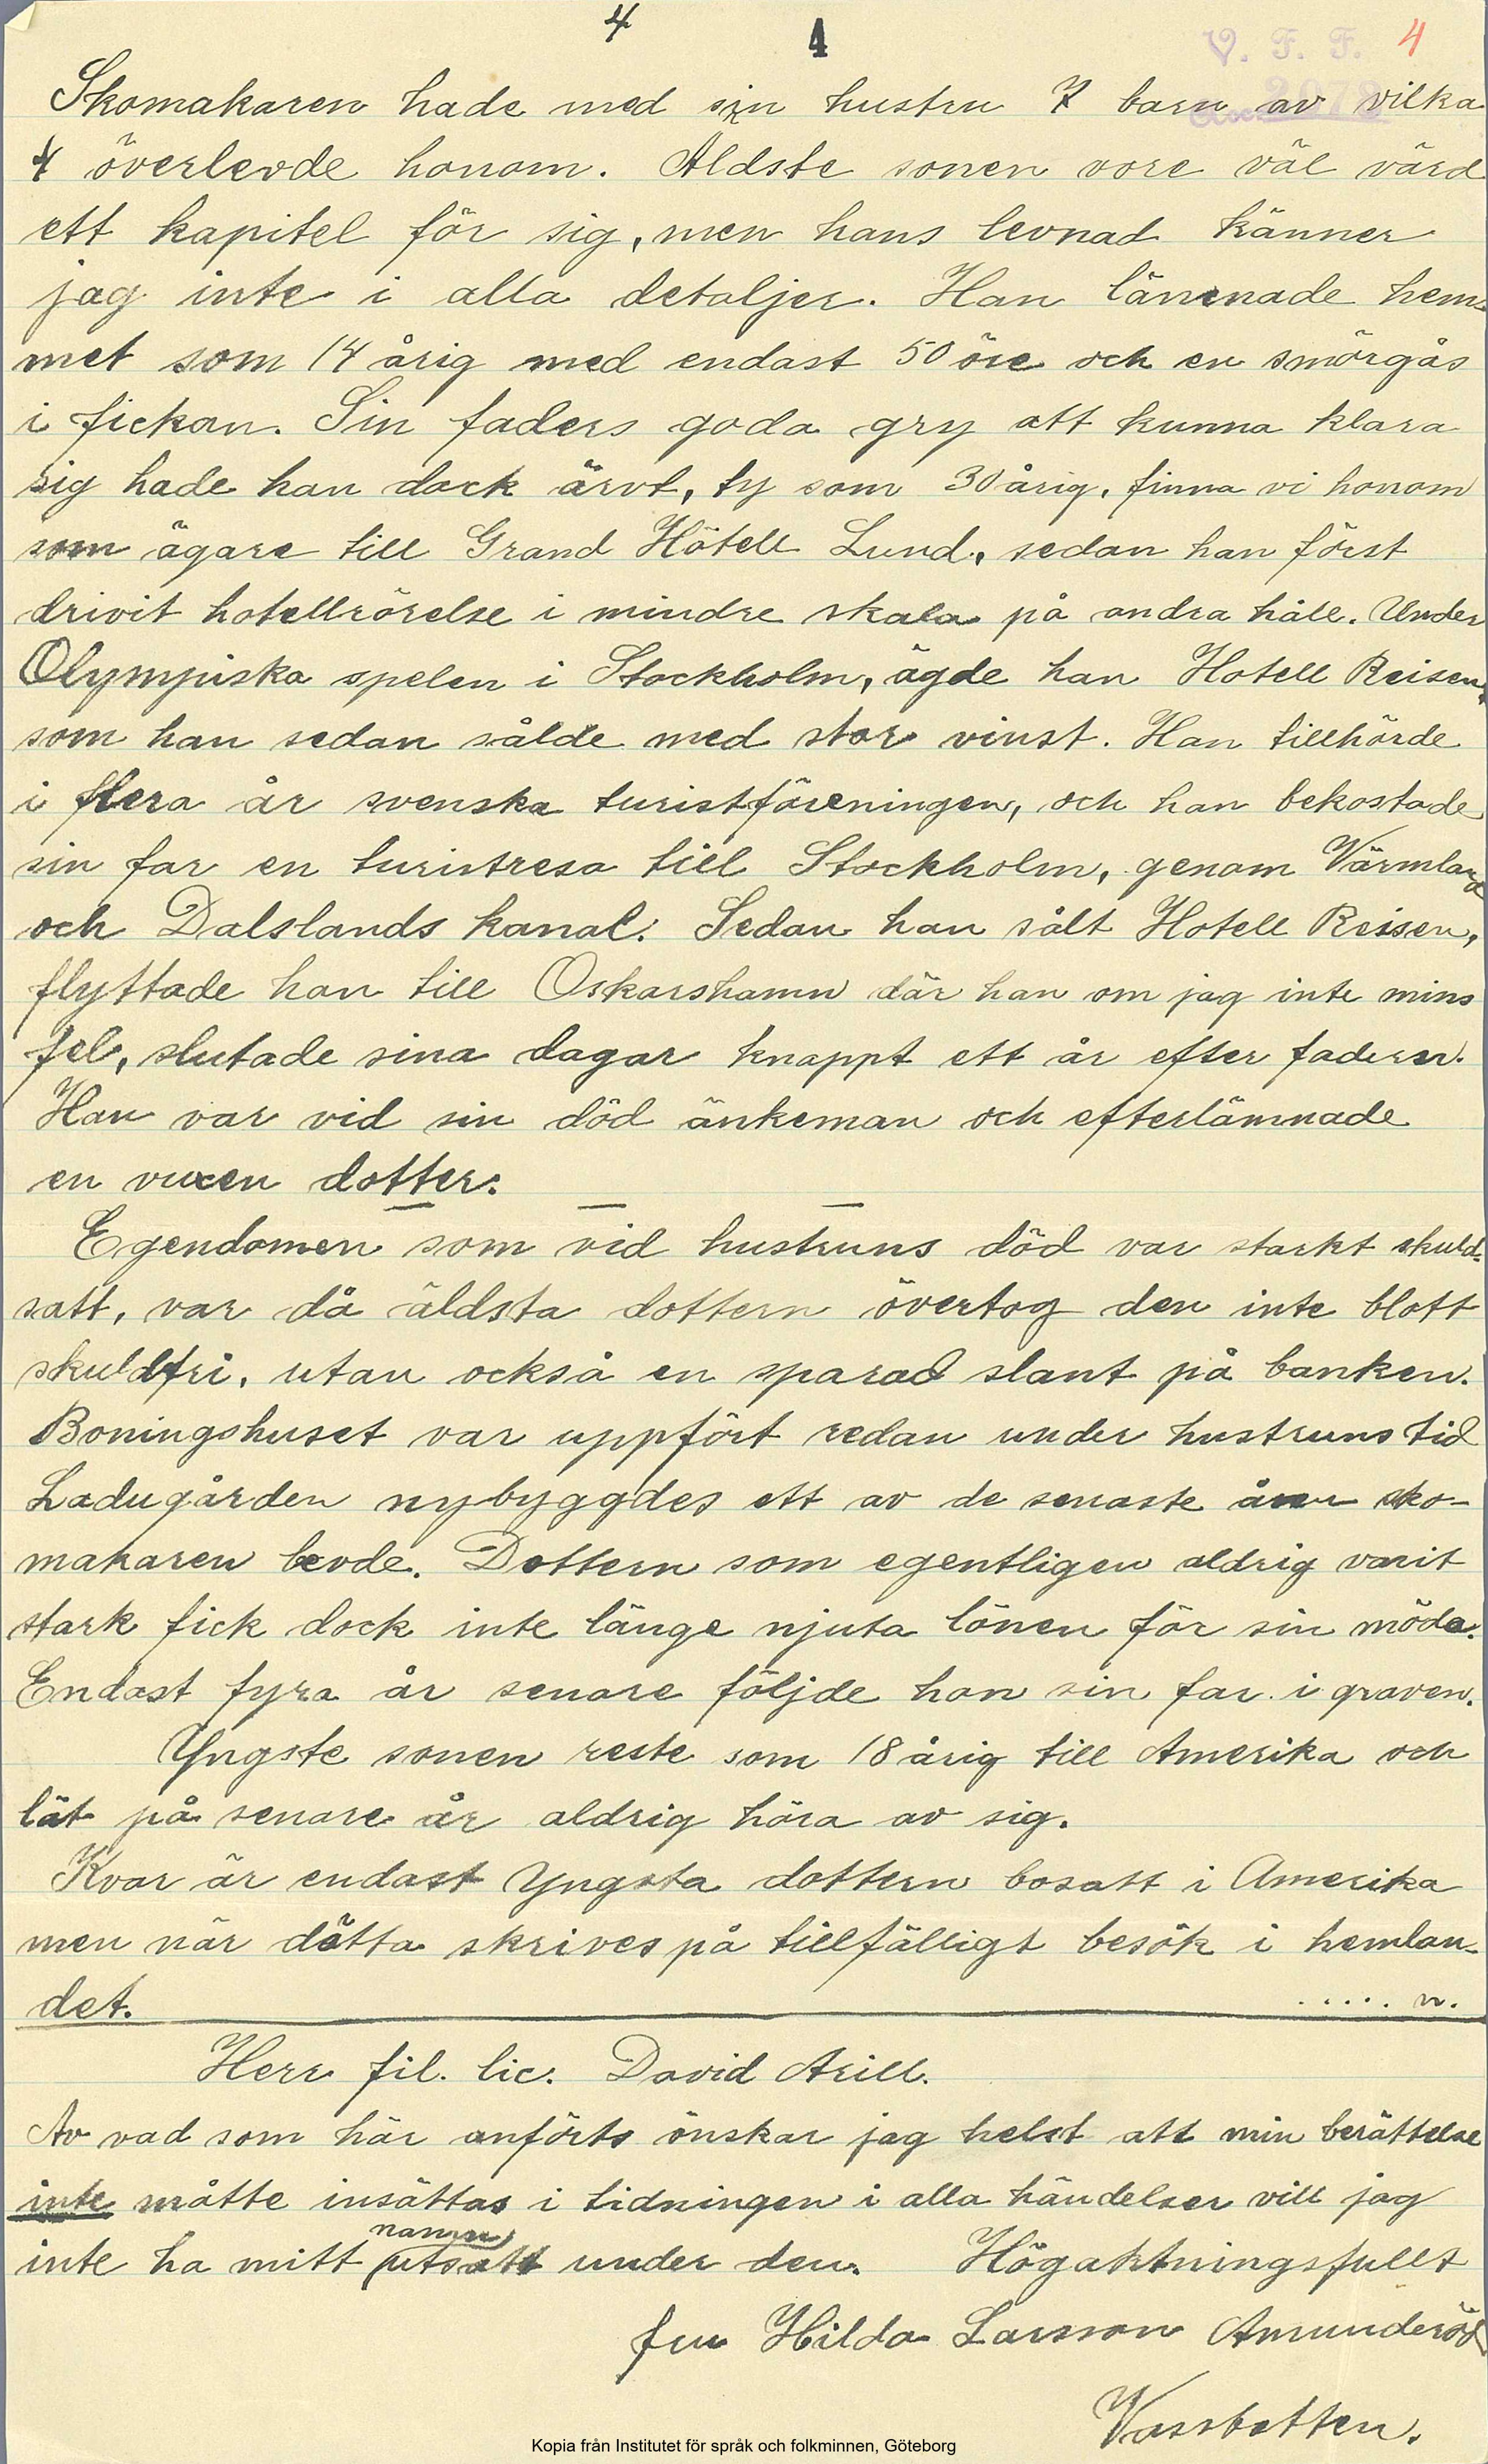 4 4 V. F. F. 4
Skomakaren hade med sin hustru 7 barn av vilka
4 överlevde honom. Äldste sonen vore väl värd
ett kapitel för sig, men hans levnad känner
jag inte i alla detaljer. Han lämnade hem-
met som 14 årig med endast 50 öre och en smörgås
i fickan. Sin faders goda gry att kunna klara
sig hade han dock ärvt, ty som 30 årig, finna vi honom
som ägare till Grand Hötell Lund, sedan han först
drivit hotellrörelse i mindre skala på andra håll. Under
Olympiska spelen i Stockholm, ägde han Hotell Reisen,
som han sedan sålde med stor vinst. Han tillhörde
i flera år svenska turistföreningen, och han bekostade
sin far en turistresa till Stockholm, genom Värmland
och Dalslands kanal. Sedan han sålt Hotell Reisen,
flyttade han till Oskarshamn där han om jag inte mins
fel, slutade sina dagar knappt ett år efter fadern.
Han var vid sin död änkeman och efterlämnade
en vuxen dotter.
Egendomen som vid hustruns död var starkt skuld-
satt, var då äldsta dottern övertog den inte blott
skuldfri, utan också en sparad slant på banken.
Boningshuset var uppfört redan under hustruns tid
Ladugården nybyggdes ett av de senaste åren sko-
makaren levde. Dottern som egentligen aldrig varit
stark fick dock inte länge njuta lönen för sin möda.
Endast fyra år senare följde hon sin far i graven.
Yngste sonen reste som 18 årig till Amerika och
lät på senare år aldrig höra av sig.
Kvar är endast Yngsta dottern bosatt i Amerika
men när dätta skrives på tillfälligt besök i hemlan-
det. ..... n.
Herr fil. lic. David Arill.
Av vad som här anförts önskar jag helst att min berättelse
inte måtte insättas i tidningen i alla händelser vill jag
inte ha mitt namn utsatt under den. Högaktningsfullt
fru Hilda Larsson Amunderöd
Vassbotten.
Kopia från Institutet för språk och folkminnen, Göteborg